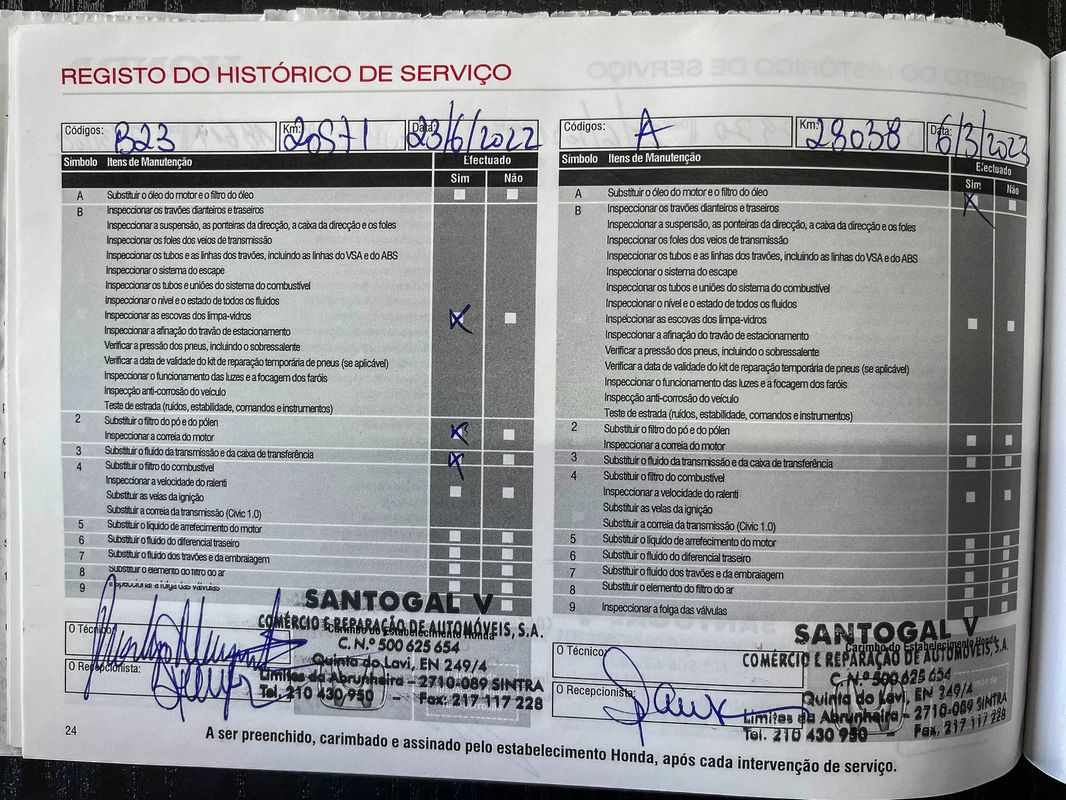 REGISTO DO HISTÓRICO DE SERVIÇO
Códigos: B23 Km: 20571 Data: 23/6/2022
Símbolo Itens de Manutenção Efectuado
Sim Não
A Substituir o óleo do motor e o filtro do óleo
B Inspeccionar os travões dianteiros e traseiros
Inspeccionar a suspensão, as ponteiras da direcção, a caixa da direcção e os foles
Inspeccionar os foles dos veios de transmissão
Inspeccionar os tubos e as linhas dos travões, incluindo as linhas do VSA e do ABS
Inspeccionar o sistema do escape
Inspeccionar os tubos e uniões do sistema do combustível
Inspeccionar o nível e o estado de todos os fluidos
Inspeccionar as escovas dos limpa-vidros
Inspeccionar a afinação do travão de estacionamento
Verificar a pressão dos pneus, incluindo o sobressalente
Verificar a data de validade do kit de reparação temporária de pneus (se aplicável)
Inspeccionar o funcionamento das luzes e a focagem dos faróis
Inspecção anti-corrosão do veículo
Teste de estrada (ruídos, estabilidade, comandos e instrumentos)
2 Substituir o filtro do pó e do pólen
Inspeccionar a correia do motor
3 Substituir o fluido da transmissão e da caixa de transferência
4 Substituir o filtro do combustível
Inspeccionar a velocidade do ralenti
Substituir as velas da ignição
Substituir a correia da transmissão (Civic 1.0)
5 Substituir o líquido de arrefecimento do motor
6 Substituir o fluido do diferencial traseiro
7 Substituir o fluido dos travões e da embraiagem
8 Substituir o elemento do filtro do ar
9 Inspeccionar a folga das válvulas
O Técnico:
O Recepcionista:
Carimbo do Estabelecimento Honda
SANTOGAL V
COMÉRCIO E REPARAÇÃO DE AUTOMÓVEIS, S.A.
C. N.º 500 625 654
Quinta do Lavi, EN 249/4
Limites da Abrunheira – 2710-089 SINTRA
Tel. 210 430 950 – Fax: 217 117 228
Códigos: A Km: 28038 Data: 6/3/2023
Símbolo Itens de Manutenção Efectuado
Sim Não
A Substituir o óleo do motor e o filtro do óleo
B Inspeccionar os travões dianteiros e traseiros
Inspeccionar a suspensão, as ponteiras da direcção, a caixa da direcção e os foles
Inspeccionar os foles dos veios de transmissão
Inspeccionar os tubos e as linhas dos travões, incluindo as linhas do VSA e do ABS
Inspeccionar o sistema do escape
Inspeccionar os tubos e uniões do sistema do combustível
Inspeccionar o nível e o estado de todos os fluidos
Inspeccionar as escovas dos limpa-vidros
Inspeccionar a afinação do travão de estacionamento
Verificar a pressão dos pneus, incluindo o sobressalente
Verificar a data de validade do kit de reparação temporária de pneus (se aplicável)
Inspeccionar o funcionamento das luzes e a focagem dos faróis
Inspecção anti-corrosão do veículo
Teste de estrada (ruídos, estabilidade, comandos e instrumentos)
2 Substituir o filtro do pó e do pólen
Inspeccionar a correia do motor
3 Substituir o fluido da transmissão e da caixa de transferência
4 Substituir o filtro do combustível
Inspeccionar a velocidade do ralenti
Substituir as velas da ignição
Substituir a correia da transmissão (Civic 1.0)
5 Substituir o líquido de arrefecimento do motor
6 Substituir o fluido do diferencial traseiro
7 Substituir o fluido dos travões e da embraiagem
8 Substituir o elemento do filtro do ar
9 Inspeccionar a folga das válvulas
O Técnico:
O Recepcionista:
Carimbo do Estabelecimento Honda
SANTOGAL V
COMÉRCIO E REPARAÇÃO DE AUTOMÓVEIS, S.A.
C. N.º 500 625 654
Quinta do Lavi, EN 249/4
Limites da Abrunheira – 2710-089 SINTRA
Tel. 210 430 950 – Fax: 217 117 228
24
A ser preenchido, carimbado e assinado pelo estabelecimento Honda, após cada intervenção de serviço.